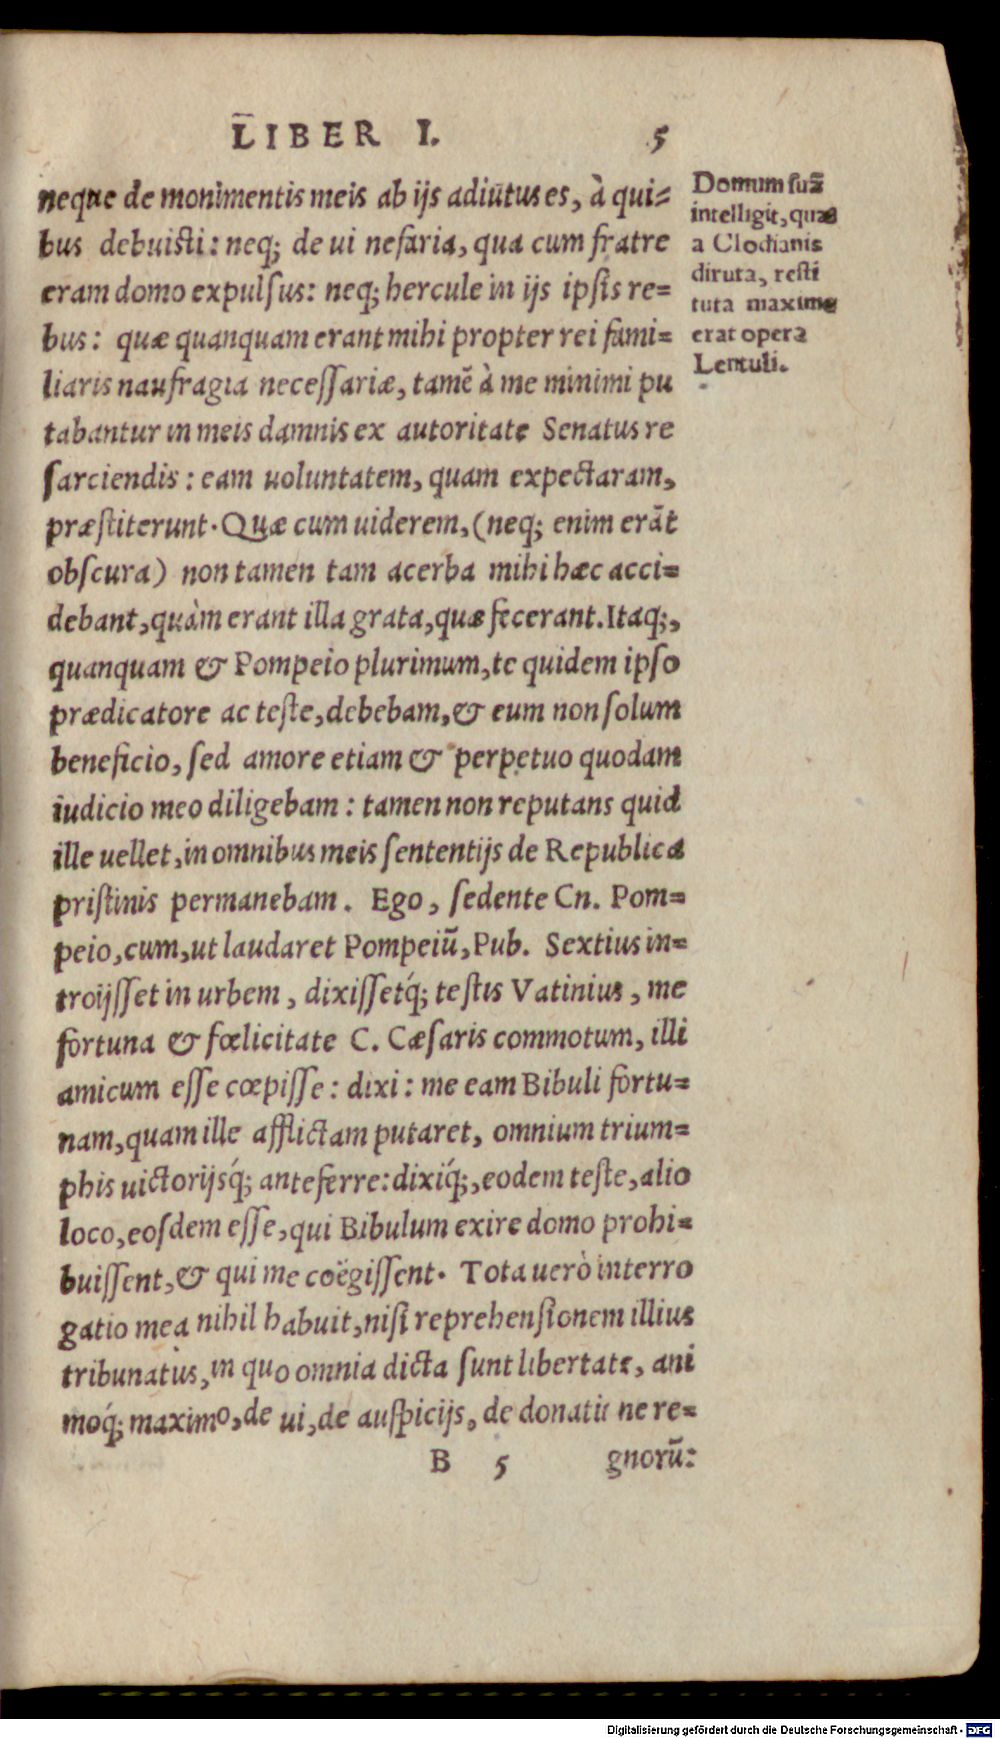 LIBER I. 5
neque de monimentis meis ab ijs adiutus es, à qui=
bus debuisti: neq; de ui nefaria, qua cum fratre
eram domo expulsus: neq; hercule in ijs ipsis re=
bus: quæ quanquam erant mihi propter rei fami=
liaris naufragia necessariæ, tamē à me minimi pu
tabantur in meis damnis ex autoritate Senatus re
sarciendis: eam uoluntatem, quam expectaram,
præstiterunt. Quæ cum uiderem, (neq; enim erāt
obscura) non tamen tam acerba mihi hæc acci=
debant, quàm erant illa grata, quæ fecerant. Itaq;,
quanquam & Pompeio plurimum, te quidem ipso
prædicatore ac teste, debebam, & eum non solum
beneficio, sed amore etiam & perpetuo quodam
iudicio meo diligebam: tamen non reputans quid
ille uellet, in omnibus meis sententijs de Republica
pristinis permanebam. Ego, sedente Cn. Pom=
peio, cum, ut laudaret Pompeiū, Pub. Sextius in=
troijsset in urbem, dixissetq́; testis Vatinius, me
fortuna & fœlicitate C. Cæsaris commotum, illi
amicum esse cœpisse: dixi: me eam Bibuli fortu=
nam, quam ille afflictam putaret, omnium trium=
phis uictorijsq́; anteferre: dixiq́;, eodem teste, alio
loco, eosdem esse, qui Bibulum exire domo prohi=
buissent, & qui me coëgissent. Tota uerò interro
gatio mea nihil habuit, nisi reprehensionem illius
tribunatus, in quo omnia dicta sunt libertate, ani
moq́; maximo, de ui, de auspicijs, de donatione re=
B 5 gnorū:
Domum suā
intelligit, quæ
a Clodianis
diruta, resti
tuta maxime
erat opera
Lentuli.
Digitalisierung gefördert durch die Deutsche Forschungsgemeinschaft - DFG